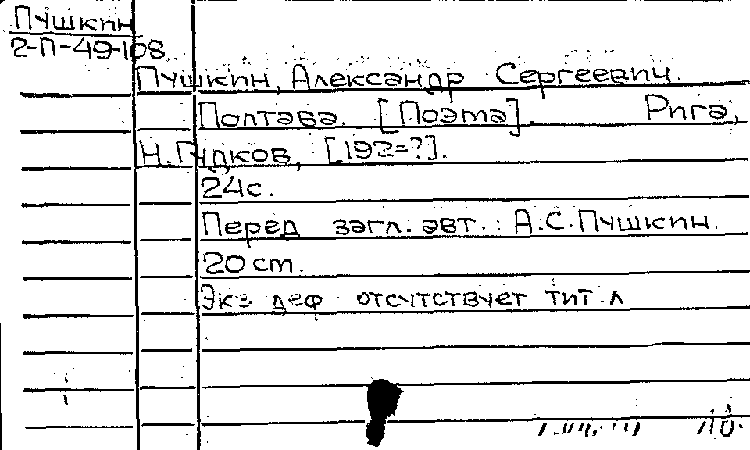 Пушкин
2-П-49-108
Пушкин, Александр Сергеевич.
Полтава. [Поэма]. Рига,
Н. Гудков, [192=?].
24с.
Перед загл. авт.: А.С.Пушкин.
20 cm.
Экз деф отсутствует тит л